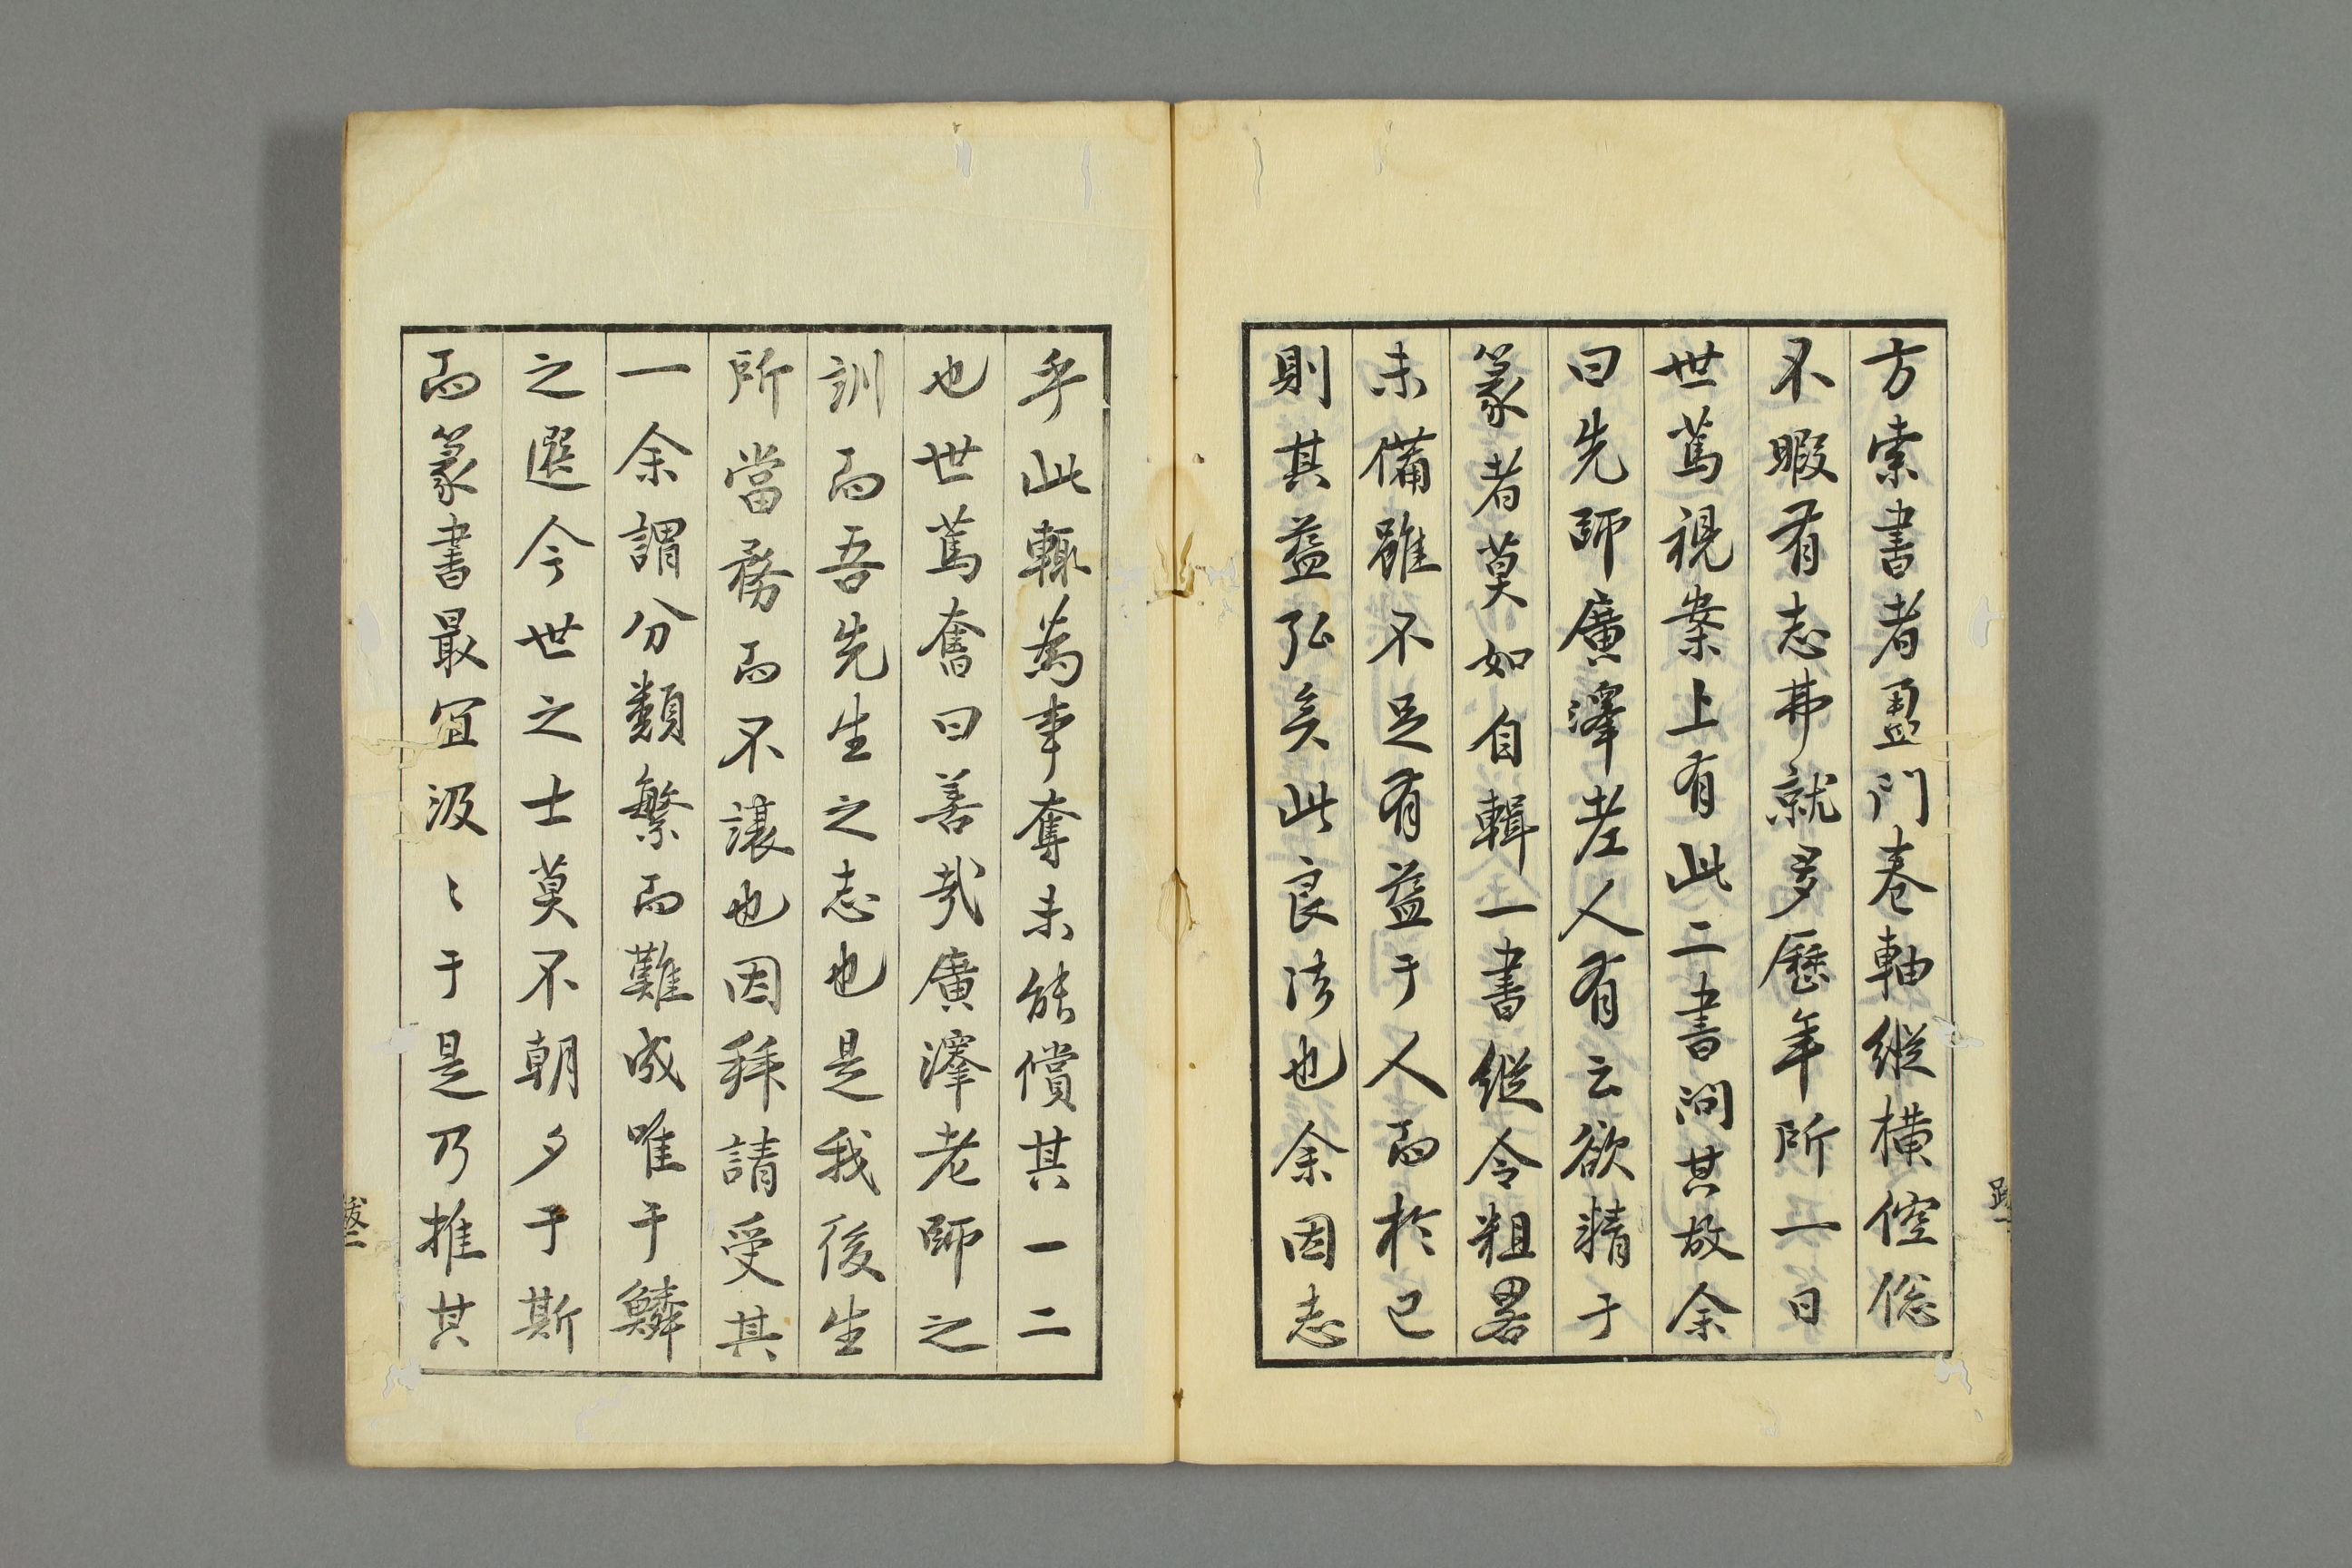 方索書者盈門卷軸縱橫倥傯
不暇有志弗就多歷年所一日
世篤視案上有此二書問其故余
曰先師廣澤老人有云欲精于
篆者莫如自輯一書縱令粗畧
未備雖不足有益于人而於己
則其益弘矣此良法也余因志
乎此輒為事奪未能償其一二
也世篤奮曰善哉廣澤老師之
訓而吾先生之志也是我後生
所當務而不讓也因拜請受其
一余謂分類繁而難成唯于鱗
之選今世之士莫不朝夕于斯
而篆書最宜汲〻于是乃推其
跋二